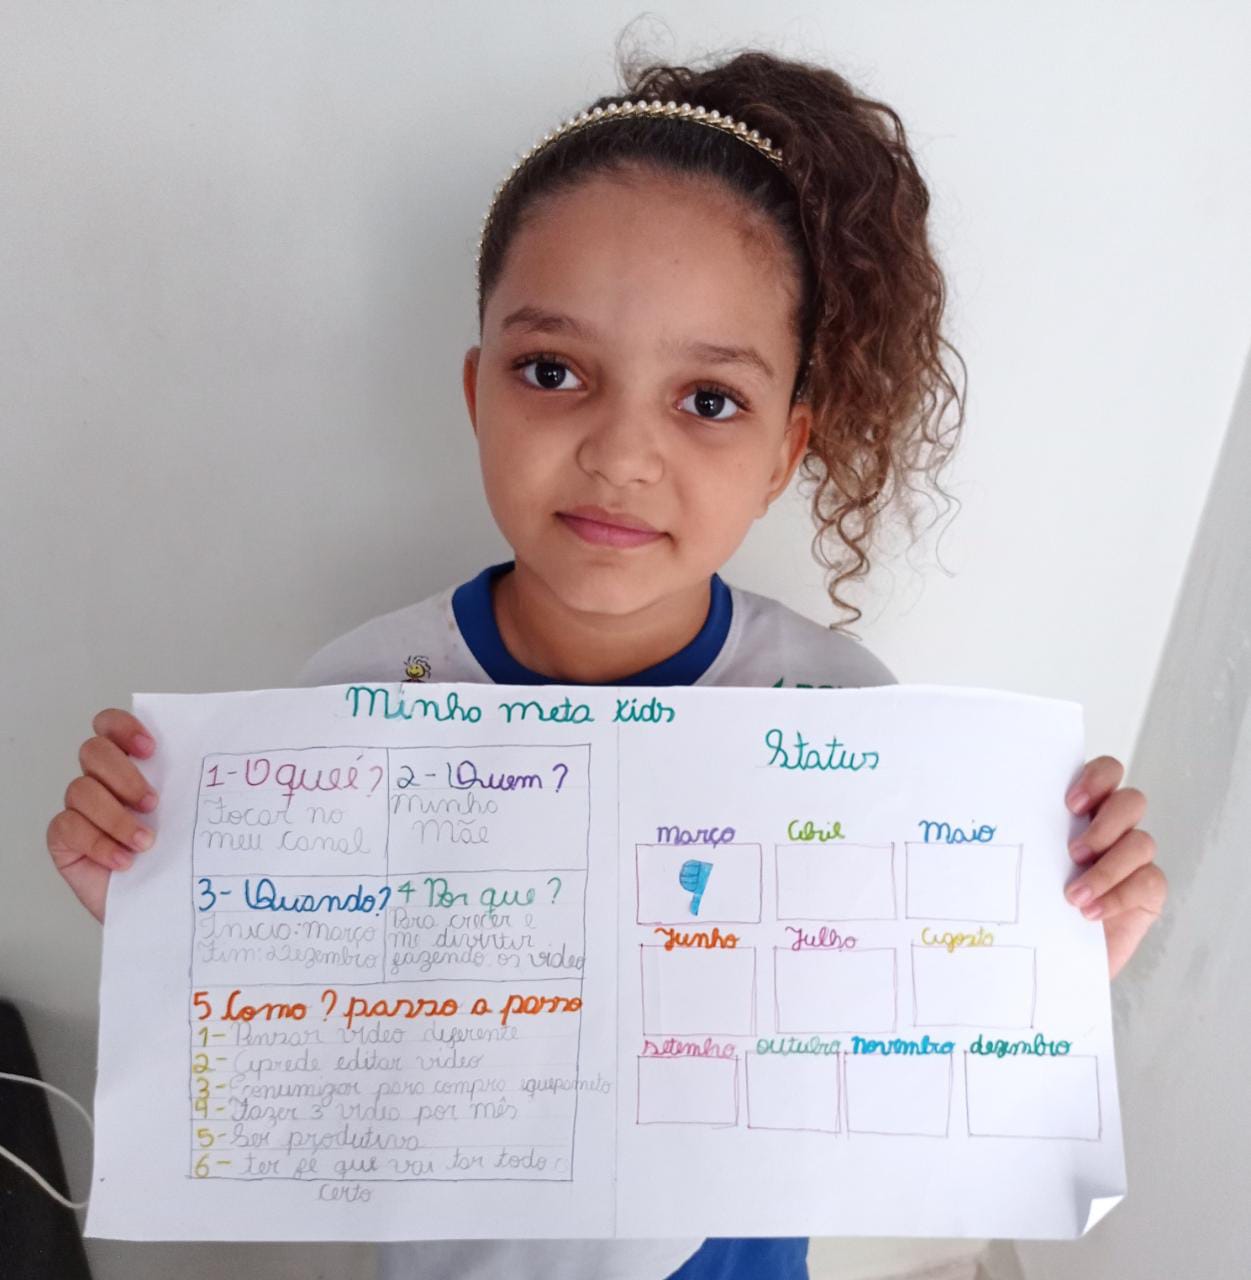 Minha meta kids
1- O que é?
Focar no
meu canal
2- Quem?
minha
Mãe
3- Quando?
Início: março
Fim: Dezembro
4 Por que?
Para crecer e
me divirtir
fazendo os video
5 Como? passo a passo
1- Penzar video diferente
2- Aprede editar video
3- Econumizar para compra equipameto
4- Fazer 3 video por mês
5- Ser produtiva
6- ter fé que vai tar todo
certo
Status
março
Abril
Maio
Junho
Julho
Agosto
setembro
outubro
novembro
dezembro